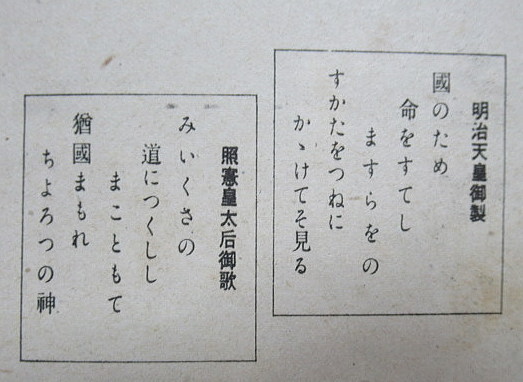 明治天皇御製
國のため
命をすてし
ますらをの
すかたをつねに
かゝけてそ見る
照憲皇太后御歌
みいくさの
道につくしし
まこともて
猶國まもれ
ちよろつの神